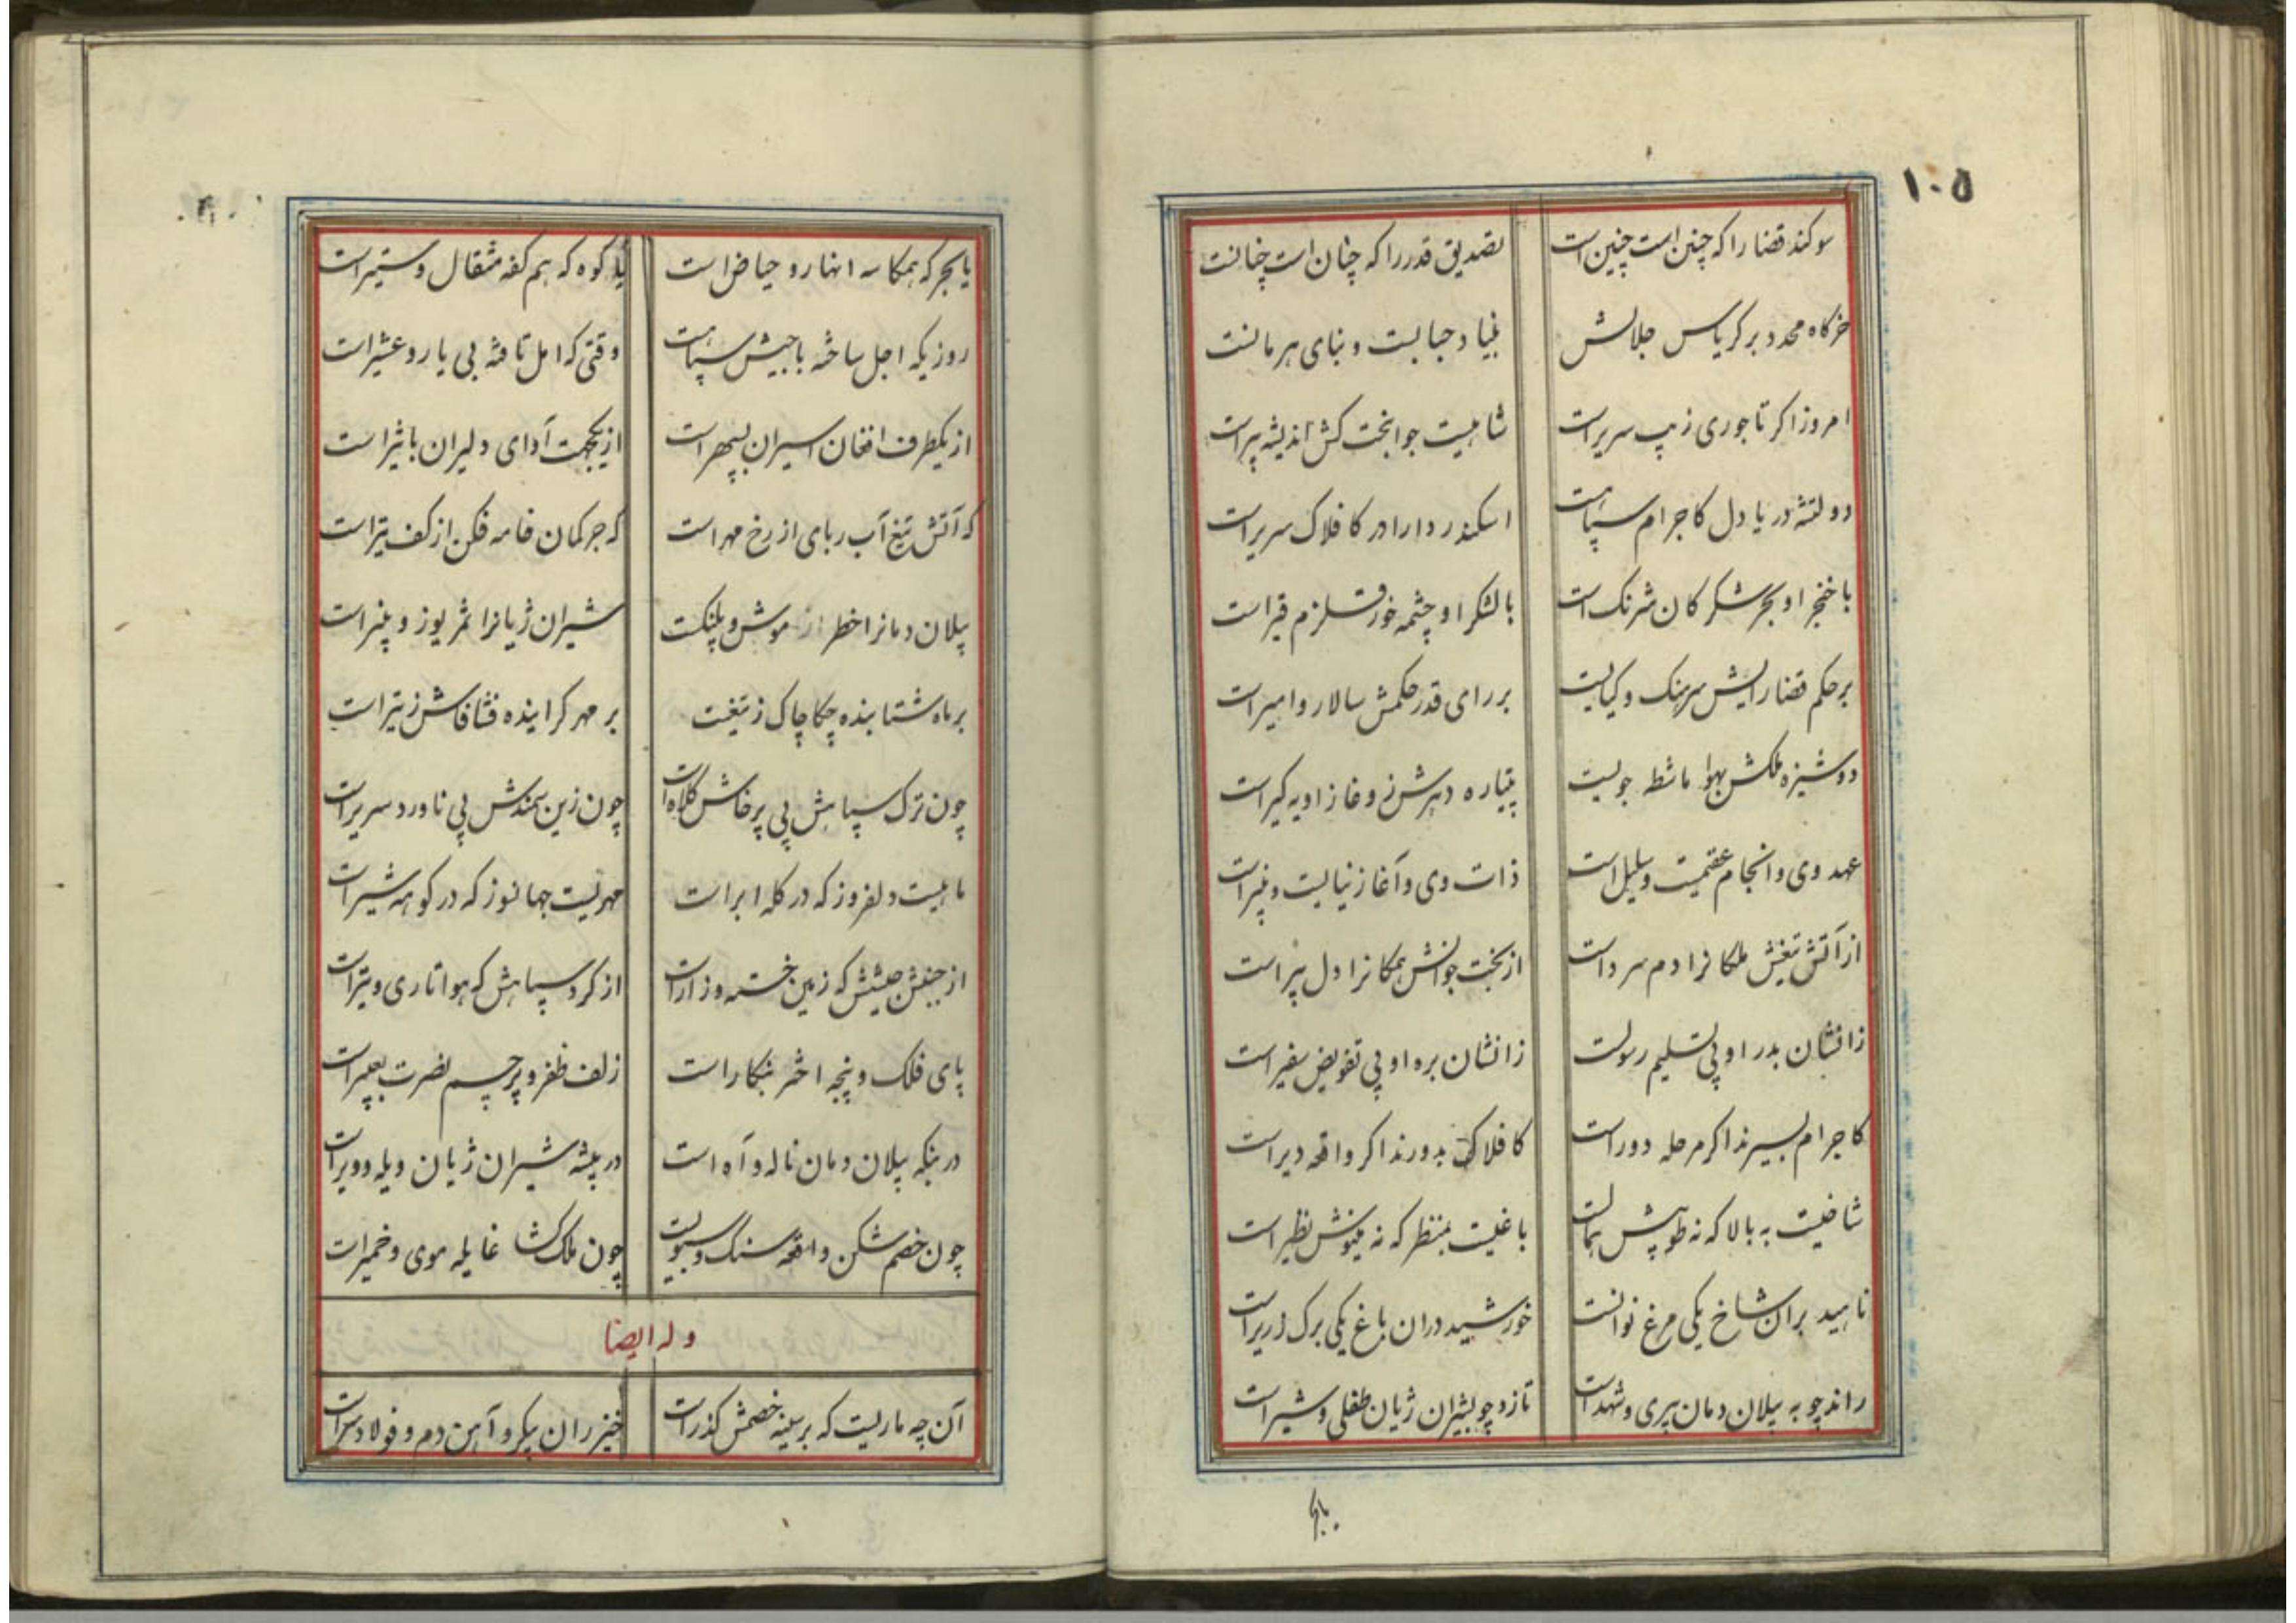 ۱۰۵
سوکند قضا را که چنین است چنین است تصدیق قدر را که چنان است چنانست
خرکاه محدد بر کریاس جلالش بنیاد جبالست و بنای هرمانست
امروز اکر تاجوری زیب سریر است شاهیست جوانبخت کش اندیشه پیر است
دولتشه دریا دل کاجرام سپاهست اسکندر دارا در کافلاک سریر است
با خنجر او بحر شکر کان شرنک است با لشکر او چشمه خور قلزم قیر است
بر حکم قضا رایش سرهنک و کیالیست بر رای قدر حکمش سالار و امیر است
دوشیزه ملکش بهوا ماشطه جویست پتیاره دهرش ز وغا زاویه کیر است
عهد وی و انجام عقیمست و سلیل است ذات وی و آغاز نیالیست و نپیر است
از آتش تیغش ملکانرا دم سرد است از بخت جوانش همکانرا دل پیر است
زانشان بدر او پی تسلیم رسولست زانشان بره او پی تفویض سفیر است
کاجرام بسیرند اکر مرحله دور است کافلاک بدورند اکر واقعه دیر است
شاخیست به بالا که نه طوبیش همالست باغیست بمنظر که نه مینوش نظیر است
ناهید بران شاخ یکی مرغ نوانست خورشید دران باغ یکی برک زریر است
راند چو به پیلان دمان پیری و شهد است تازد چو بشیران ژیان طفلی و شیر است
یا بحر که همکاسه انهار و حیاض است یا کوه که هم کفه مثقال و ستیر است
روزیکه اجل ساخته با جیش سپاهست وقتی که امل تافته بی یار و عشیر است
از یکطرف افغان اسیران بسپهر است از یکجهت آوای دلیران باثیر است
که آتش تیغ آب ربای از رخ مهر است که جرکمان خامه فکن از کف تیر است
پیلان دمانرا خطر از موش و پلنکست شیران ژیانرا ثمر یوز و پنیر است
بر ماه شتابنده چکاچاک ز تیغست بر مهر کراینده فشافاش ز تیر است
چون ترک سپاهش پی پرخاش کلاه است چون زین سمندش پی ناورد سریر است
ماهیست دلفروز که در کله ابر است مهریست جهانسوز که در کوهه شیر است
از جنبش جیشش که زمین خسته و زار است از کرد سپاهش که هوا تاری و تیر است
پای فلک و پنجه اختر بنکار است زلف ظفر و پرچم نصرت بعبیر است
در بنکه پیلان دمان ناله و آه است در بیشه شیران ژیان ویله و ویر است
چون خصم شکن واقعه سنک و سبویست چون ملک کشا غایله موی و خمیر است
وله ایضا
آن چه ماریست که بر سینه خصمش کذر است خیزران پیکر و آهن دم و فولاد سر است